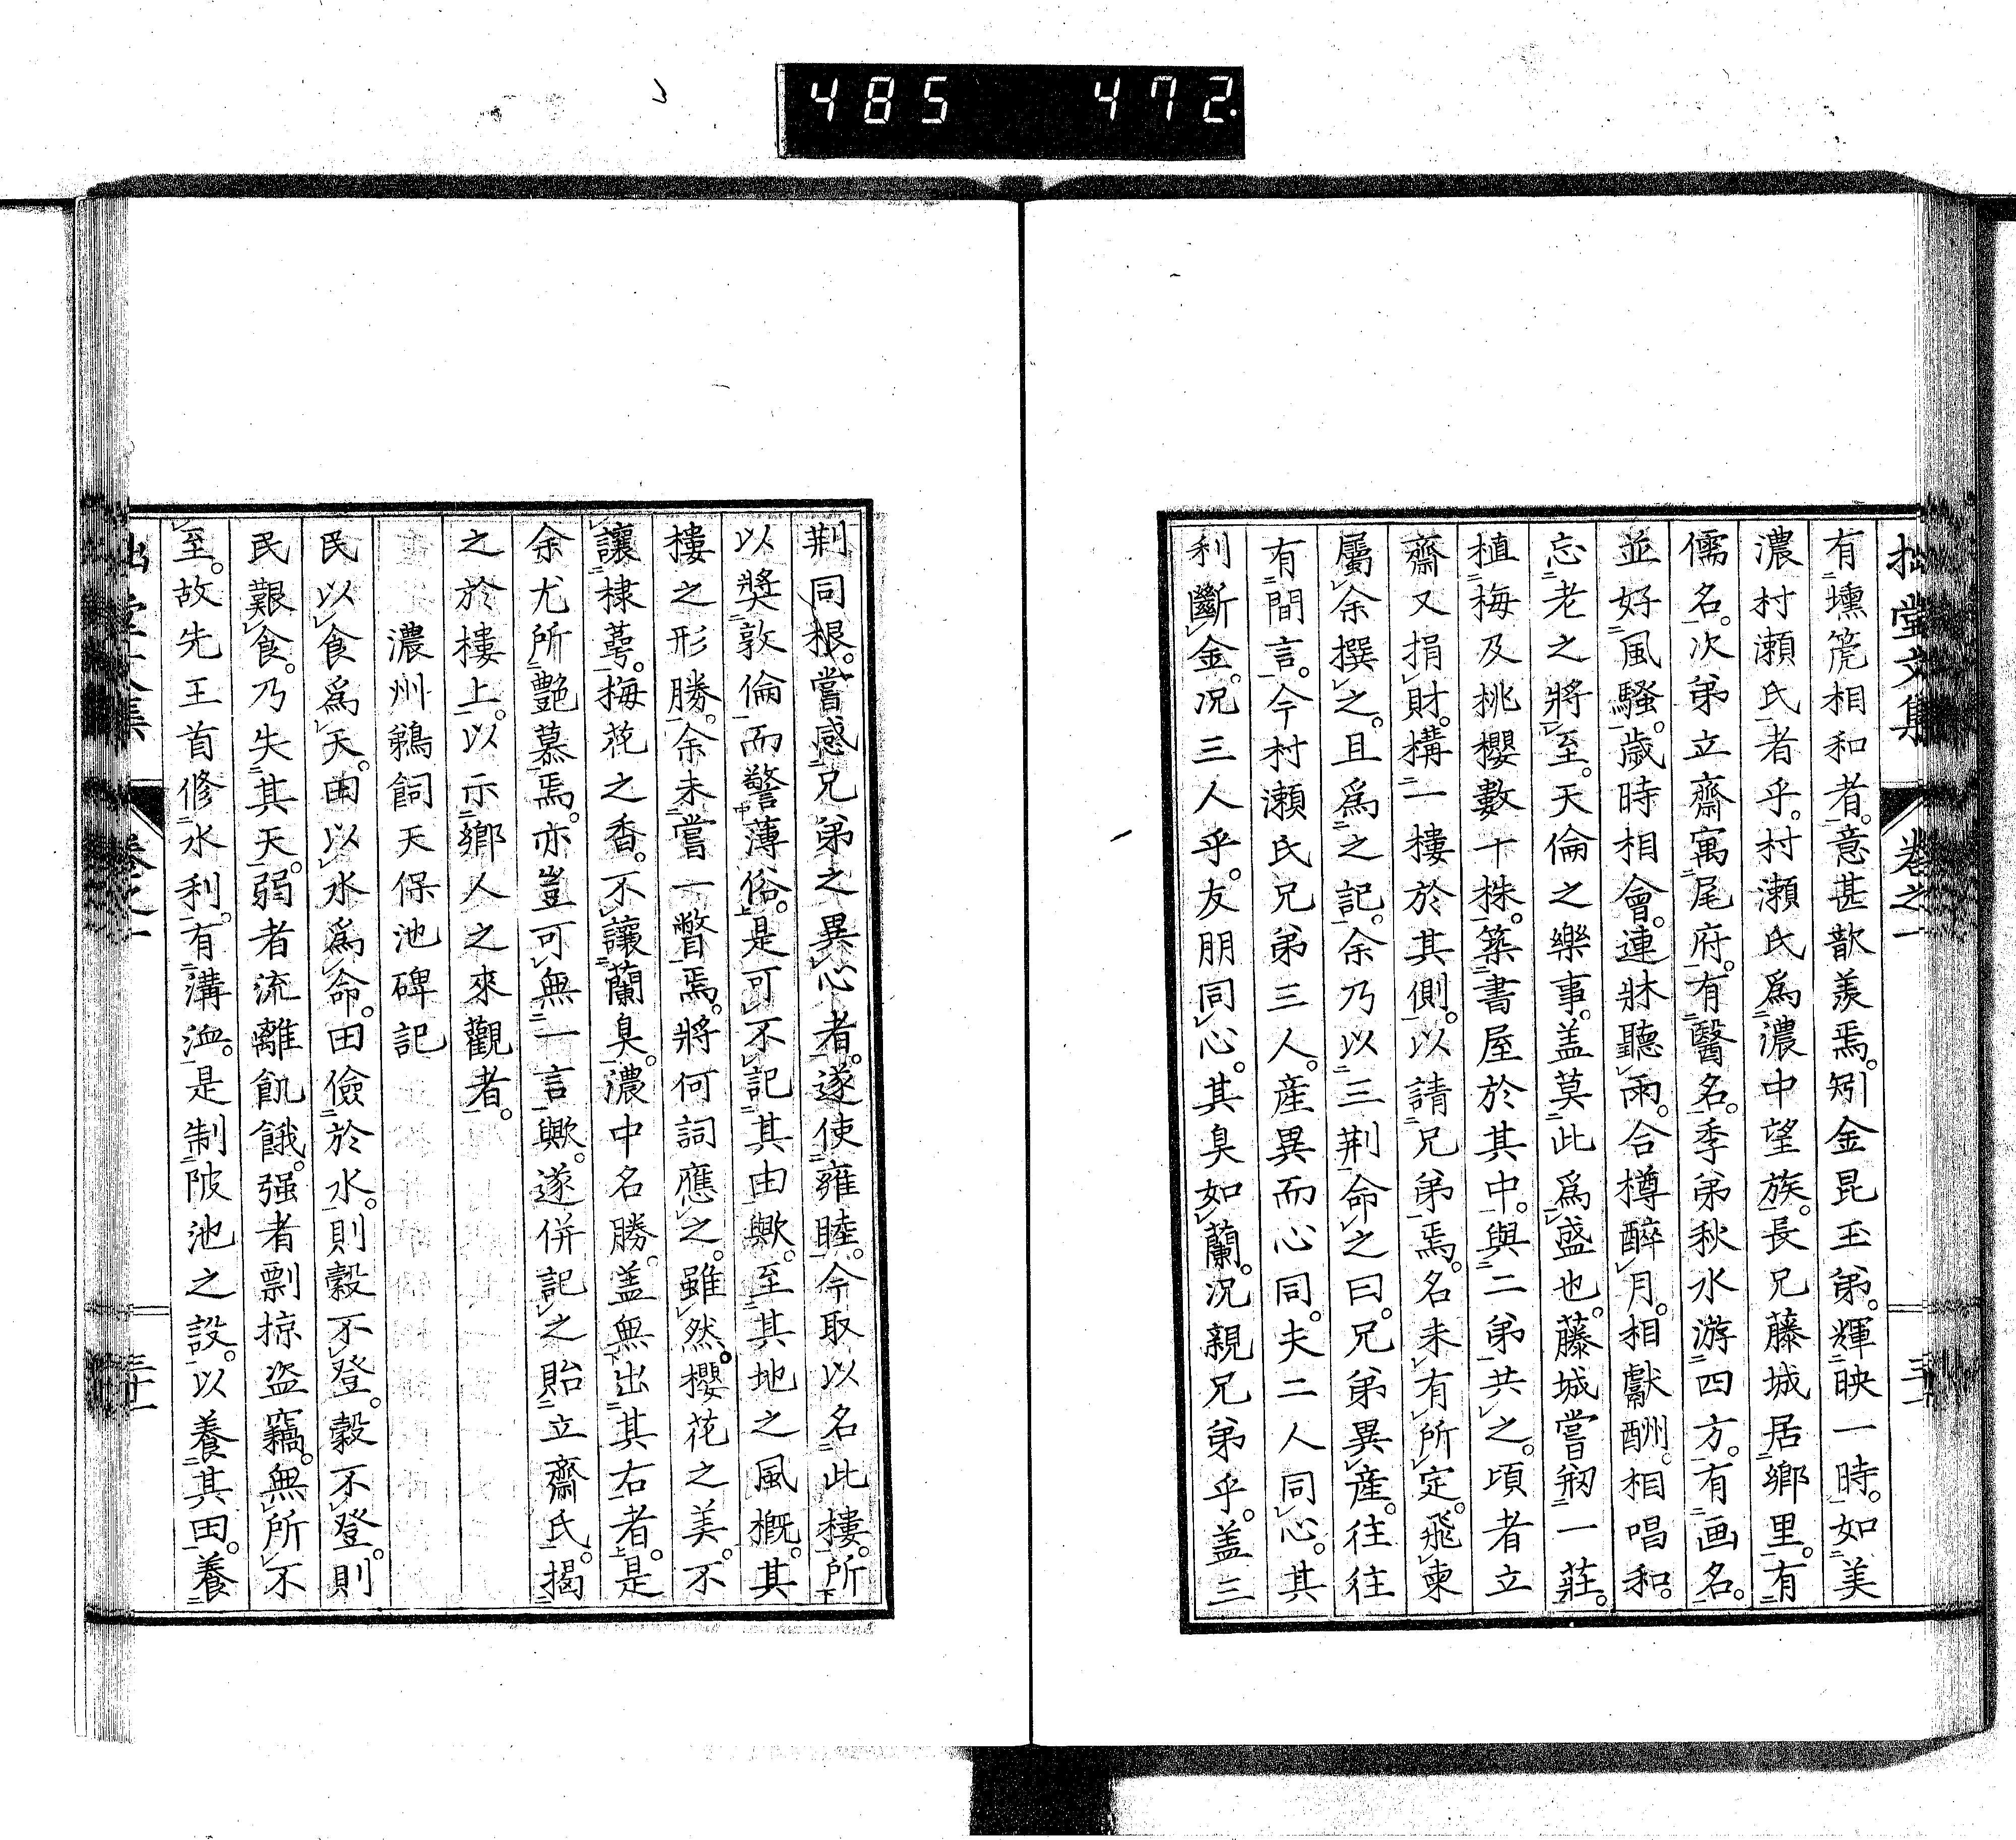 485 472
拙堂文集 卷之一
有壎篪相和者。意甚歆羨焉。矧金昆玉弟。輝映一時。如美
濃村瀬氏者乎。村瀬氏爲濃中望族。長兄藤城居鄉里。有
儒名。次弟立齋寓尾府。有醫名。季弟秋水游四方。有画名。
並好風騷。歲時相會。連牀聽雨。合樽醉月。相獻酬。相唱和。
忘老之將至。天倫之樂事。盖莫此爲盛也。藤城嘗剏一莊。
植梅及桃櫻數十株。築書屋於其中。與二弟共之。頃者立
齋又捐財。構一樓於其側。以請兄弟焉。名未有所定。飛柬
屬余撰之。且爲之記。余乃以三荆命之曰。兄弟異產。往往
有間言。今村瀬氏兄弟三人。產異而心同。夫二人同心。其
利斷金。况三人乎。友朋同心。其臭如蘭。況親兄弟乎。盖三
荆同根。嘗感兄弟之異心者。遂使雍睦。今取以名此樓。所
以奬敦倫而警薄俗。是可不記其由歟。至其地之風槪。其
樓之形勝。余未嘗一瞥焉。將何詞應之。雖然櫻花之美。不
讓棣萼。梅花之香。不讓蘭臭。濃中名勝。盖無出其右者。是
余尤所艷慕焉。亦豈可無一言歟。遂併記之貽立齋氏。揭
之於樓上。以示鄉人之來觀者。
濃州鵜飼天保池碑記
民以食爲天。田以水爲命。田儉於水。則穀不登。穀不登。則
民艱食。乃失其天。弱者流離飢餓。强者剽掠盜竊。無所不
至。故先王首修水利。有溝洫。是制陂池之設。以養其田。養